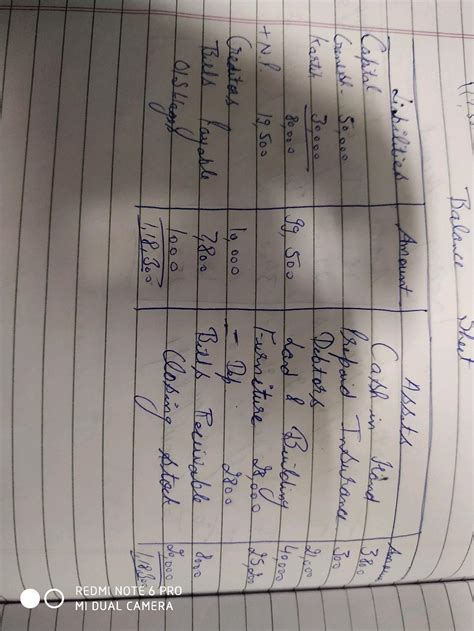 Balance Sheet
Liabilities Amount Assets
Capital Cash in Hand 3800
50,000 Prepaid Insurance 300
30,000 Debtors 21,000
80,000 Land & Building 40,000
+ N.P. 19,500 99,500 Furniture 28,000
Creditors 10,000 - Dep 2800 25,200
Bills Payable 7,800 Bills Receivable 8000
O/S Wages 1000 Closing Stock 20,000
1,18,300 1,18,300
REDMI NOTE 6 PRO
MI DUAL CAMERA